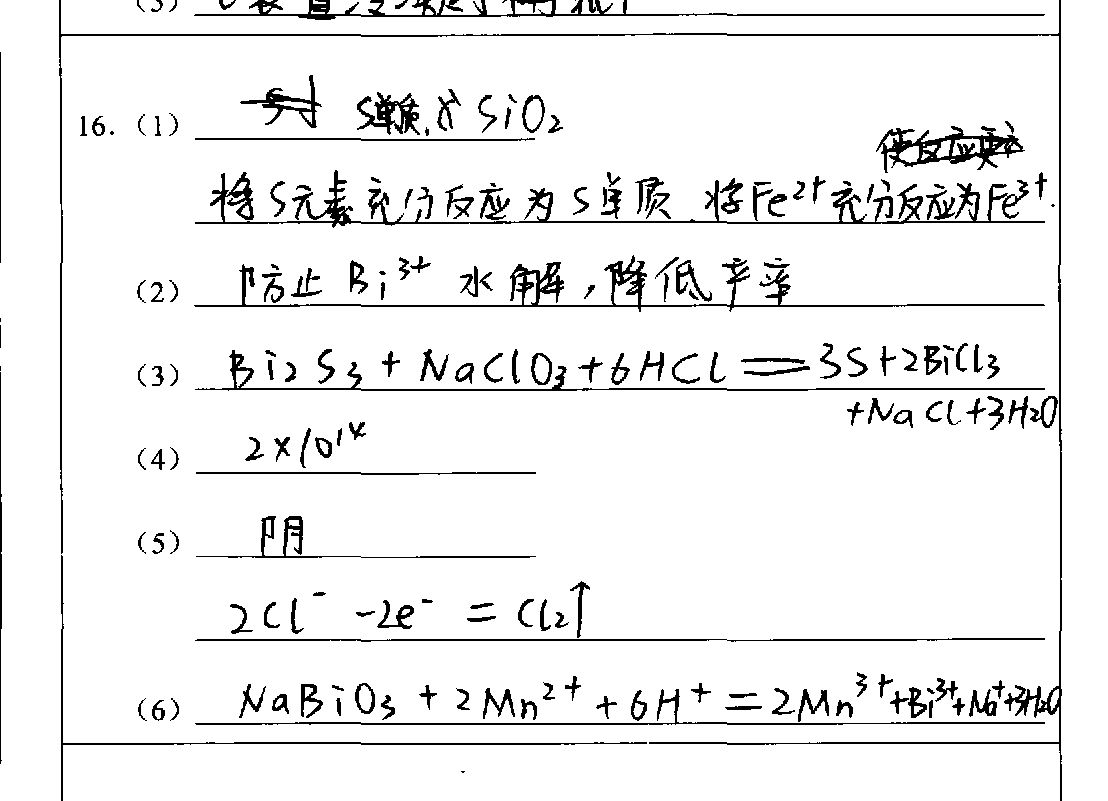 16.（1） S单质、SiO₂
将S元素充分反应为S单质.将Fe²⁺充分反应为Fe³⁺.
（2） 防止Bi³⁺水解，降低产率
（3） Bi₂S₃+NaClO₃+6HCl=3S+2BiCl₃
+NaCl+3H₂O
（4） 2×10¹⁴
（5） 阴
2Cl⁻-2e⁻=Cl₂↑
（6） NaBiO₃+2Mn²⁺+6H⁺=2Mn³⁺+Bi³⁺+Na⁺+3H₂O